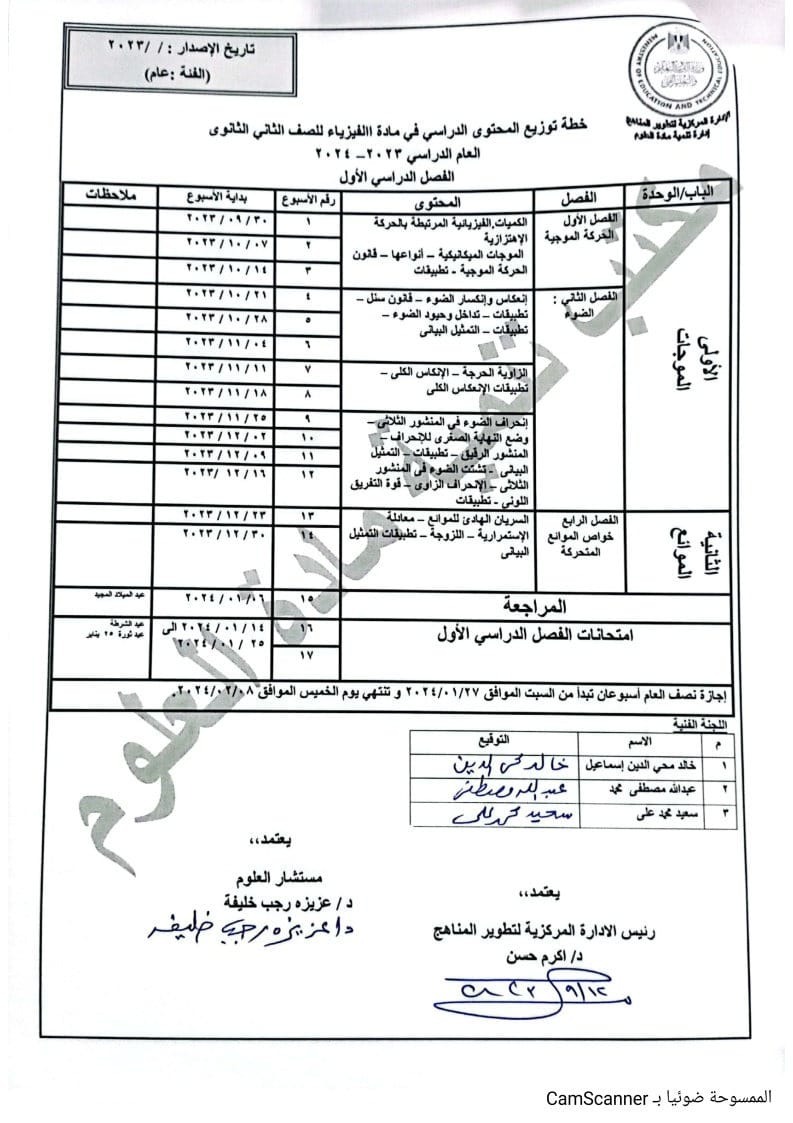 تاريخ الإصدار : / /٢٠٢٣
(الفئة :عام)
MINISTRY OF EDUCATION AND TECHNICAL EDUCATION
الإدارة المركزية لتطوير المناهج
إدارة تنمية مادة العلوم
خطة توزيع المحتوى الدراسي في مادة االفيزياء للصف الثاني الثانوى
العام الدراسي ٢٠٢٣– ٢٠٢٤
الفصل الدراسي الأول
الباب/الوحدة الفصل المحتوى رقم الأسبوع بداية الأسبوع ملاحظات
الأولى
الموجات
الفصل الأول
الحركة الموجية
الكميات الفيزيائية المرتبطة بالحركة
الإهتزازية
الموجات الميكانيكية – أنواعها – قانون
الحركة الموجية - تطبيقات
١ ٣٠ / ٠٩ / ٢٠٢٣
٢ ٠٧ / ١٠ / ٢٠٢٣
٣ ١٤ / ١٠ / ٢٠٢٣
الفصل الثاني :
الضوء
إنعكاس وإنكسار الضوء – قانون سنل –
تطبيقات – تداخل وحيود الضوء –
تطبيقات – التمثيل البيانى
٤ ٢١ / ١٠ / ٢٠٢٣
٥ ٢٨ / ١٠ / ٢٠٢٣
٦ ٠٤ / ١١ / ٢٠٢٣
الزاوية الحرجة – الإنكاس الكلى –
تطبيقات الإنعكاس الكلى
٧ ١١ / ١١ / ٢٠٢٣
٨ ١٨ / ١١ / ٢٠٢٣
إنحراف الضوء في المنشور الثلاثى –
وضع النهاية الصغرى للإنحراف –
المنشور الرقيق – تطبيقات – التمثيل
البيانى - تشتت الضوء فى المنشور
الثلاثى – الإنحراف الزاوى – قوة التفريق
اللونى - تطبيقات
٩ ٢٥ / ١١ / ٢٠٢٣
١٠ ٠٢ / ١٢ / ٢٠٢٣
١١ ٠٩ / ١٢ / ٢٠٢٣
١٢ ١٦ / ١٢ /٢٠٢٣
الثانية
الموائع
الفصل الرابع
خواص الموائع
المتحركة
السريان الهادئ للموائع – معادلة
الإستمرارية – اللزوجة – تطبيقات التمثيل
البيانى
١٣ ٢٣ / ١٢ / ٢٠٢٣
١٤ ٣٠ / ١٢ / ٢٠٢٣
المراجعة ١٥ ٠٦ /٠١ / ٢٠٢٤ عيد الميلاد المجيد
امتحانات الفصل الدراسي الأول
١٦ ١٤ /٠١ / ٢٠٢٤ الى
٢٥ / ٠١/ ٢٠٢٤
١٧
عيد الشرطة
عيد ثورة ٢٥ يناير
إجازة نصف العام أسبوعان تبدأ من السبت الموافق ٢٠٢٤/٠١/٢٧ و تنتهي يوم الخميس الموافق ٢٠٢٤/٠٢/٠٨.
اللجنة الفنية
م الاسم التوقيع
١ خالد محي الدين إسماعيل خالد محي الدين
٢ عبدالله مصطفى محمد عبدالله مصطفى
٣ سعيد محمد على سعيد محمد على
يعتمد،،
مستشار العلوم
د/ عزيزه رجب خليفة
د/ عزيزه رجب خليفه
يعتمد،،
رئيس الادارة المركزية لتطوير المناهج
د/ اكرم حسن
مكتب تنمية مادة العلوم
الممسوحة ضوئيا بـ CamScanner